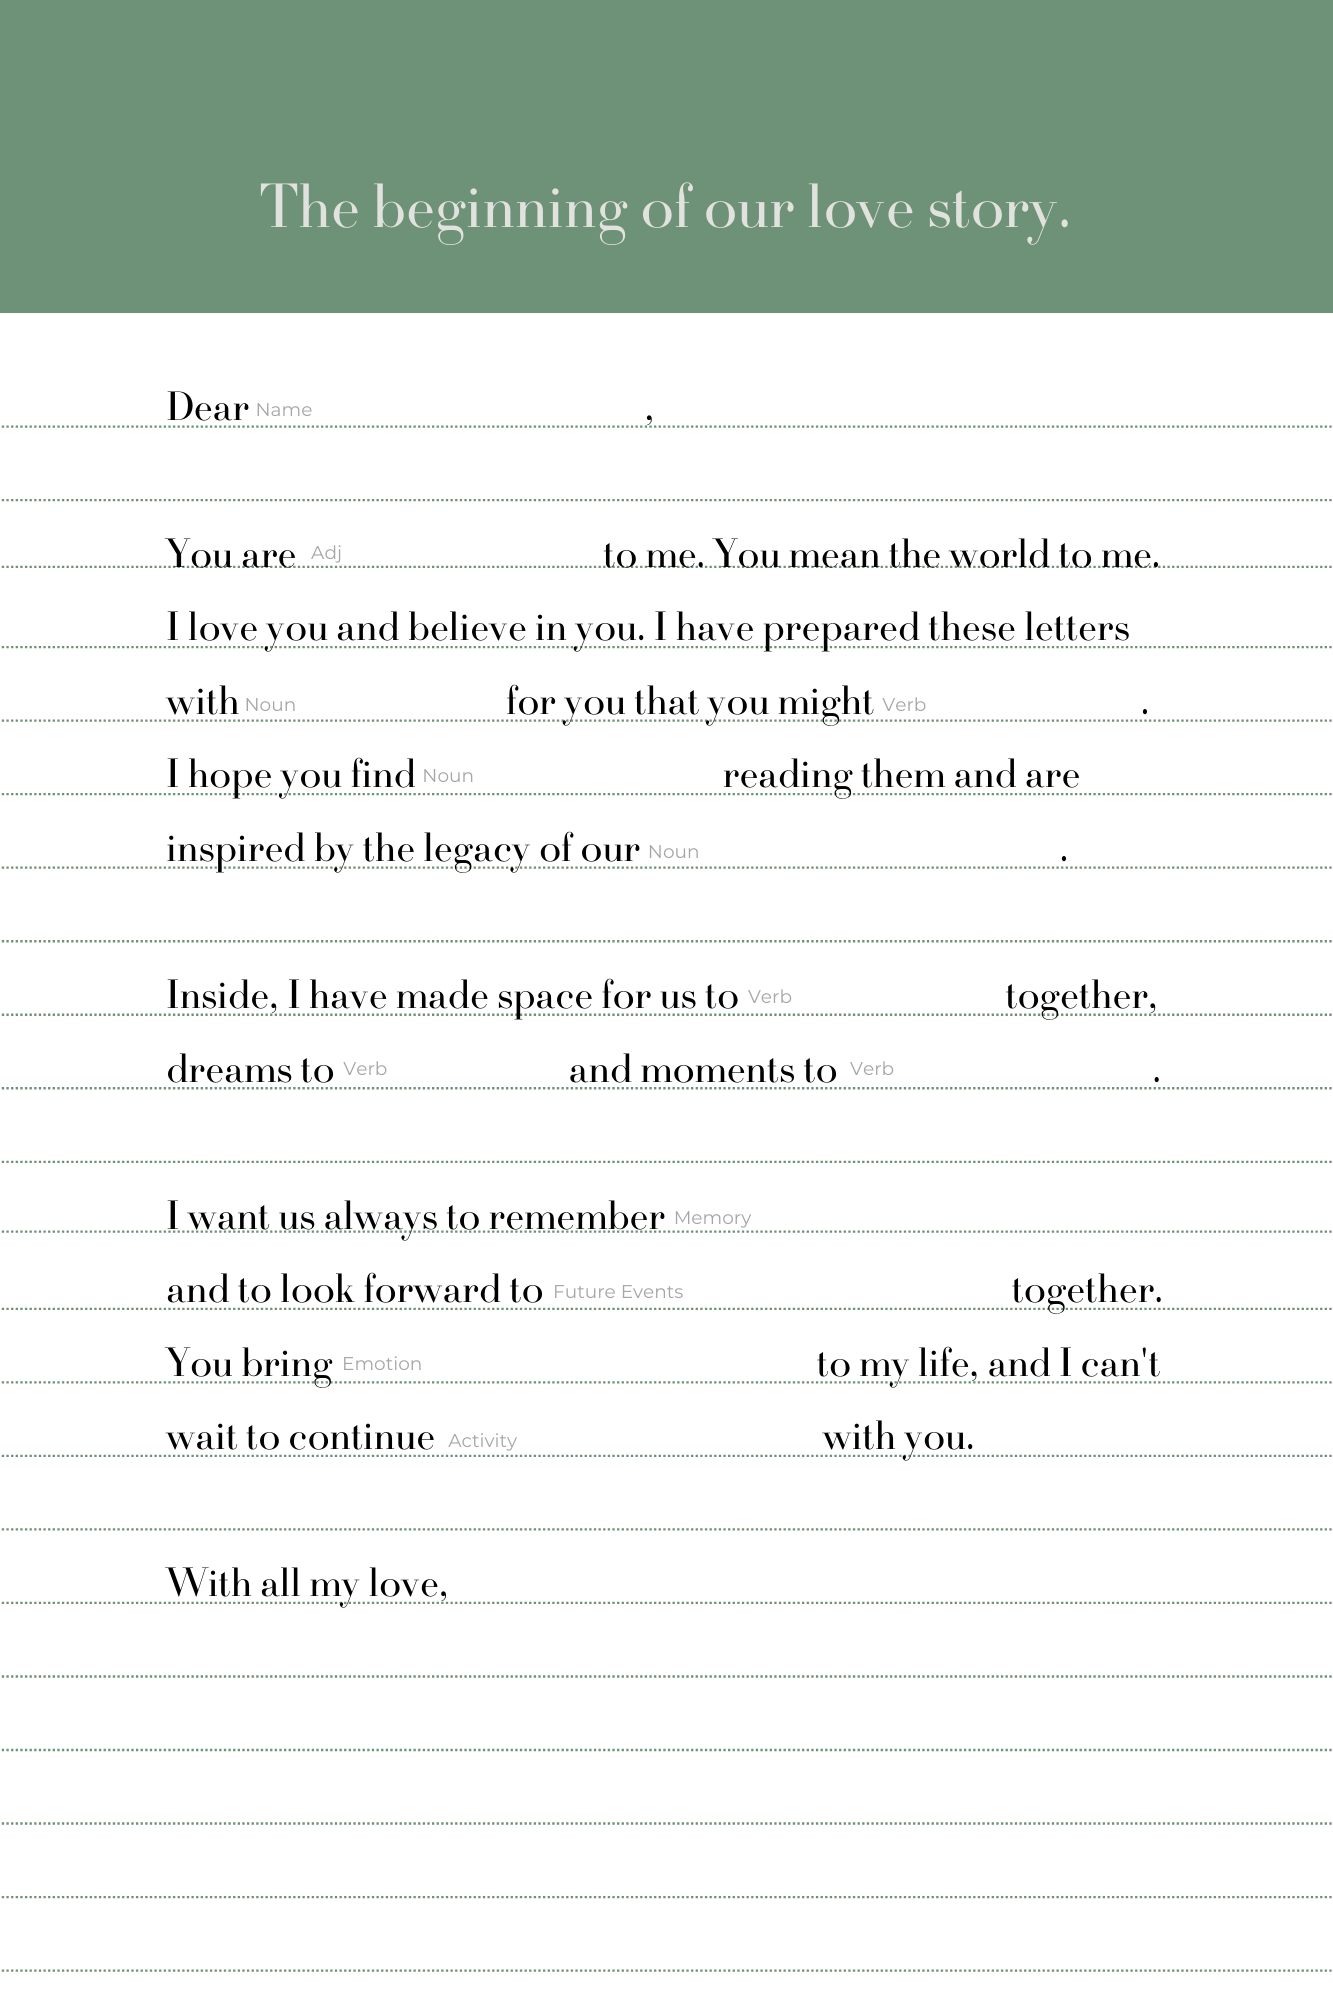 The beginning of our love story.
Dear Name ,
You are Adj to me. You mean the world to me.
I love you and believe in you. I have prepared these letters
with Noun for you that you might Verb .
I hope you find Noun reading them and are
inspired by the legacy of our Noun .
Inside, I have made space for us to Verb together,
dreams to Verb and moments to Verb .
I want us always to remember Memory
and to look forward to Future Events together.
You bring Emotion to my life, and I can't
wait to continue Activity with you.
With all my love,